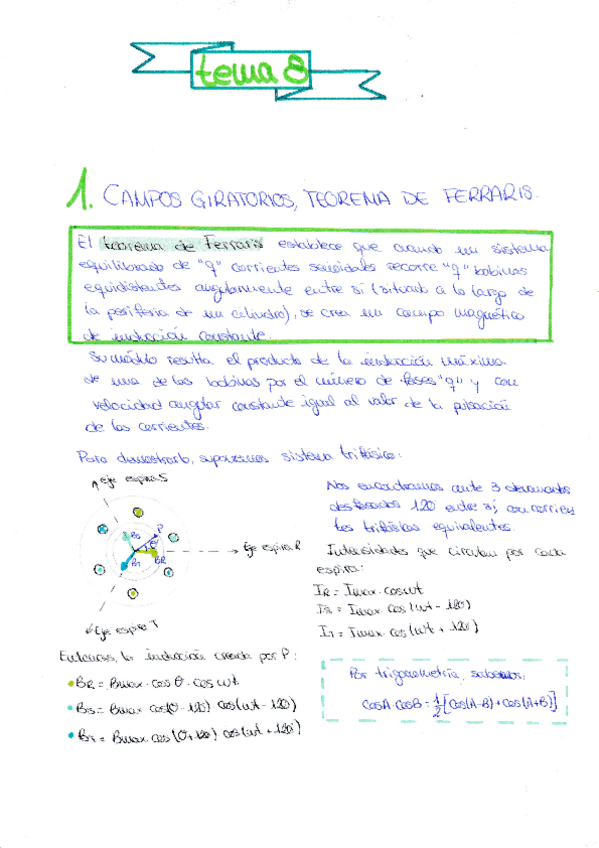 tema 8
1. CAMPOS GIRATORIOS, TEOREMA DE FERRARIS.
El teorema de Ferraris establece que cuando un sistema
equilibrado de "q" corrientes senoidales recorre "q" bobinas
equidistantes angularmente entre sí (situado a lo largo de
la periferia de un cilindro), se crea un campo magnético
de inducción constante.
Su módulo resulta el producto de la inducción máxima
de una de las bobinas por el número de fases "q" y con
velocidad angular constante igual al valor de la pulsación
de las corrientes.
Para demostrarlo, suponemos sistema trifásico:
Eje espira S
Nos encontramos ante 3 devanados
desfasados 120 entre sí, con corrien
tes trifásicas equivalentes.
P
Bs
θ
BR
BT
Eje espira R
Intensidades que circulan por cada
espira:
IR = Imax · cos wt
IS = Imax cos (wt - 120)
IT = Imax cos (wt + 120)
Eje espira T
Entonces, la inducción creada por P:
• BR = Bmax · cos θ · cos wt
• BS = Bmax cos(θ - 120) cos(wt - 120)
• BT = Bmax · cos(θ + 120) cos(wt + 120)
Por trigonometría, sabemos:
cosA · cosB = 1/2 [cos(A-B) + cos(A+B)]